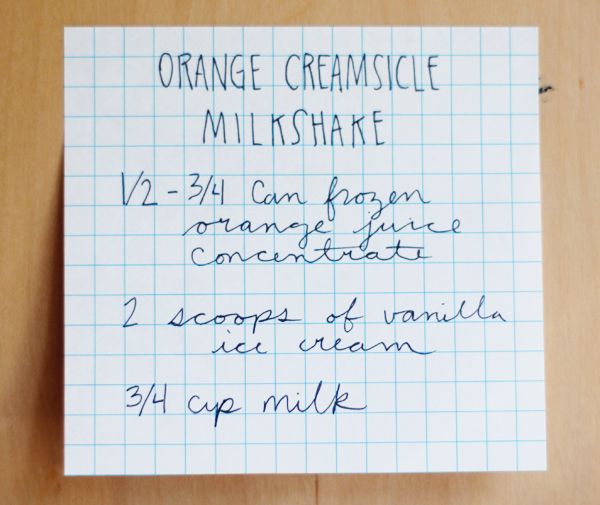 ORANGE CREAMSICLE
MILKSHAKE
1/2 - 3/4 Can frozen
orange juice
concentrate
2 scoops of vanilla
ice cream
3/4 cup milk